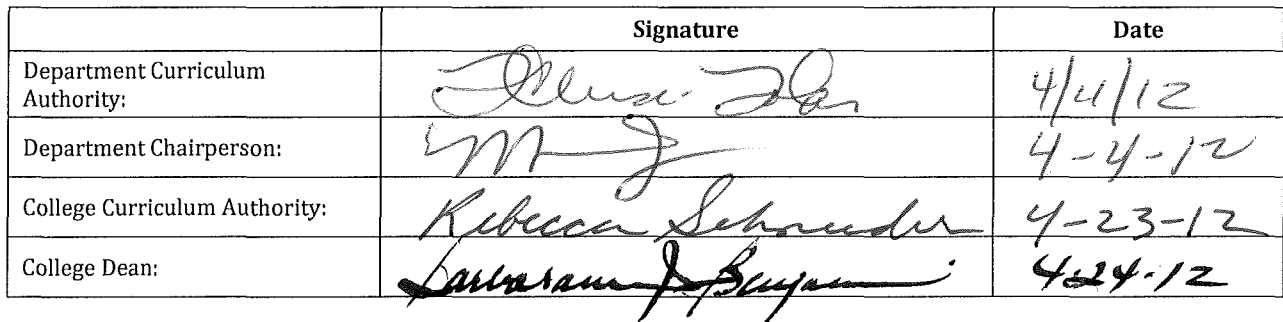 Signature Date
Department Curriculum
Authority: 4/4/12
Department Chairperson: 4-4-12
College Curriculum Authority: Rebecca 4-23-12
College Dean: J. 4-24-12